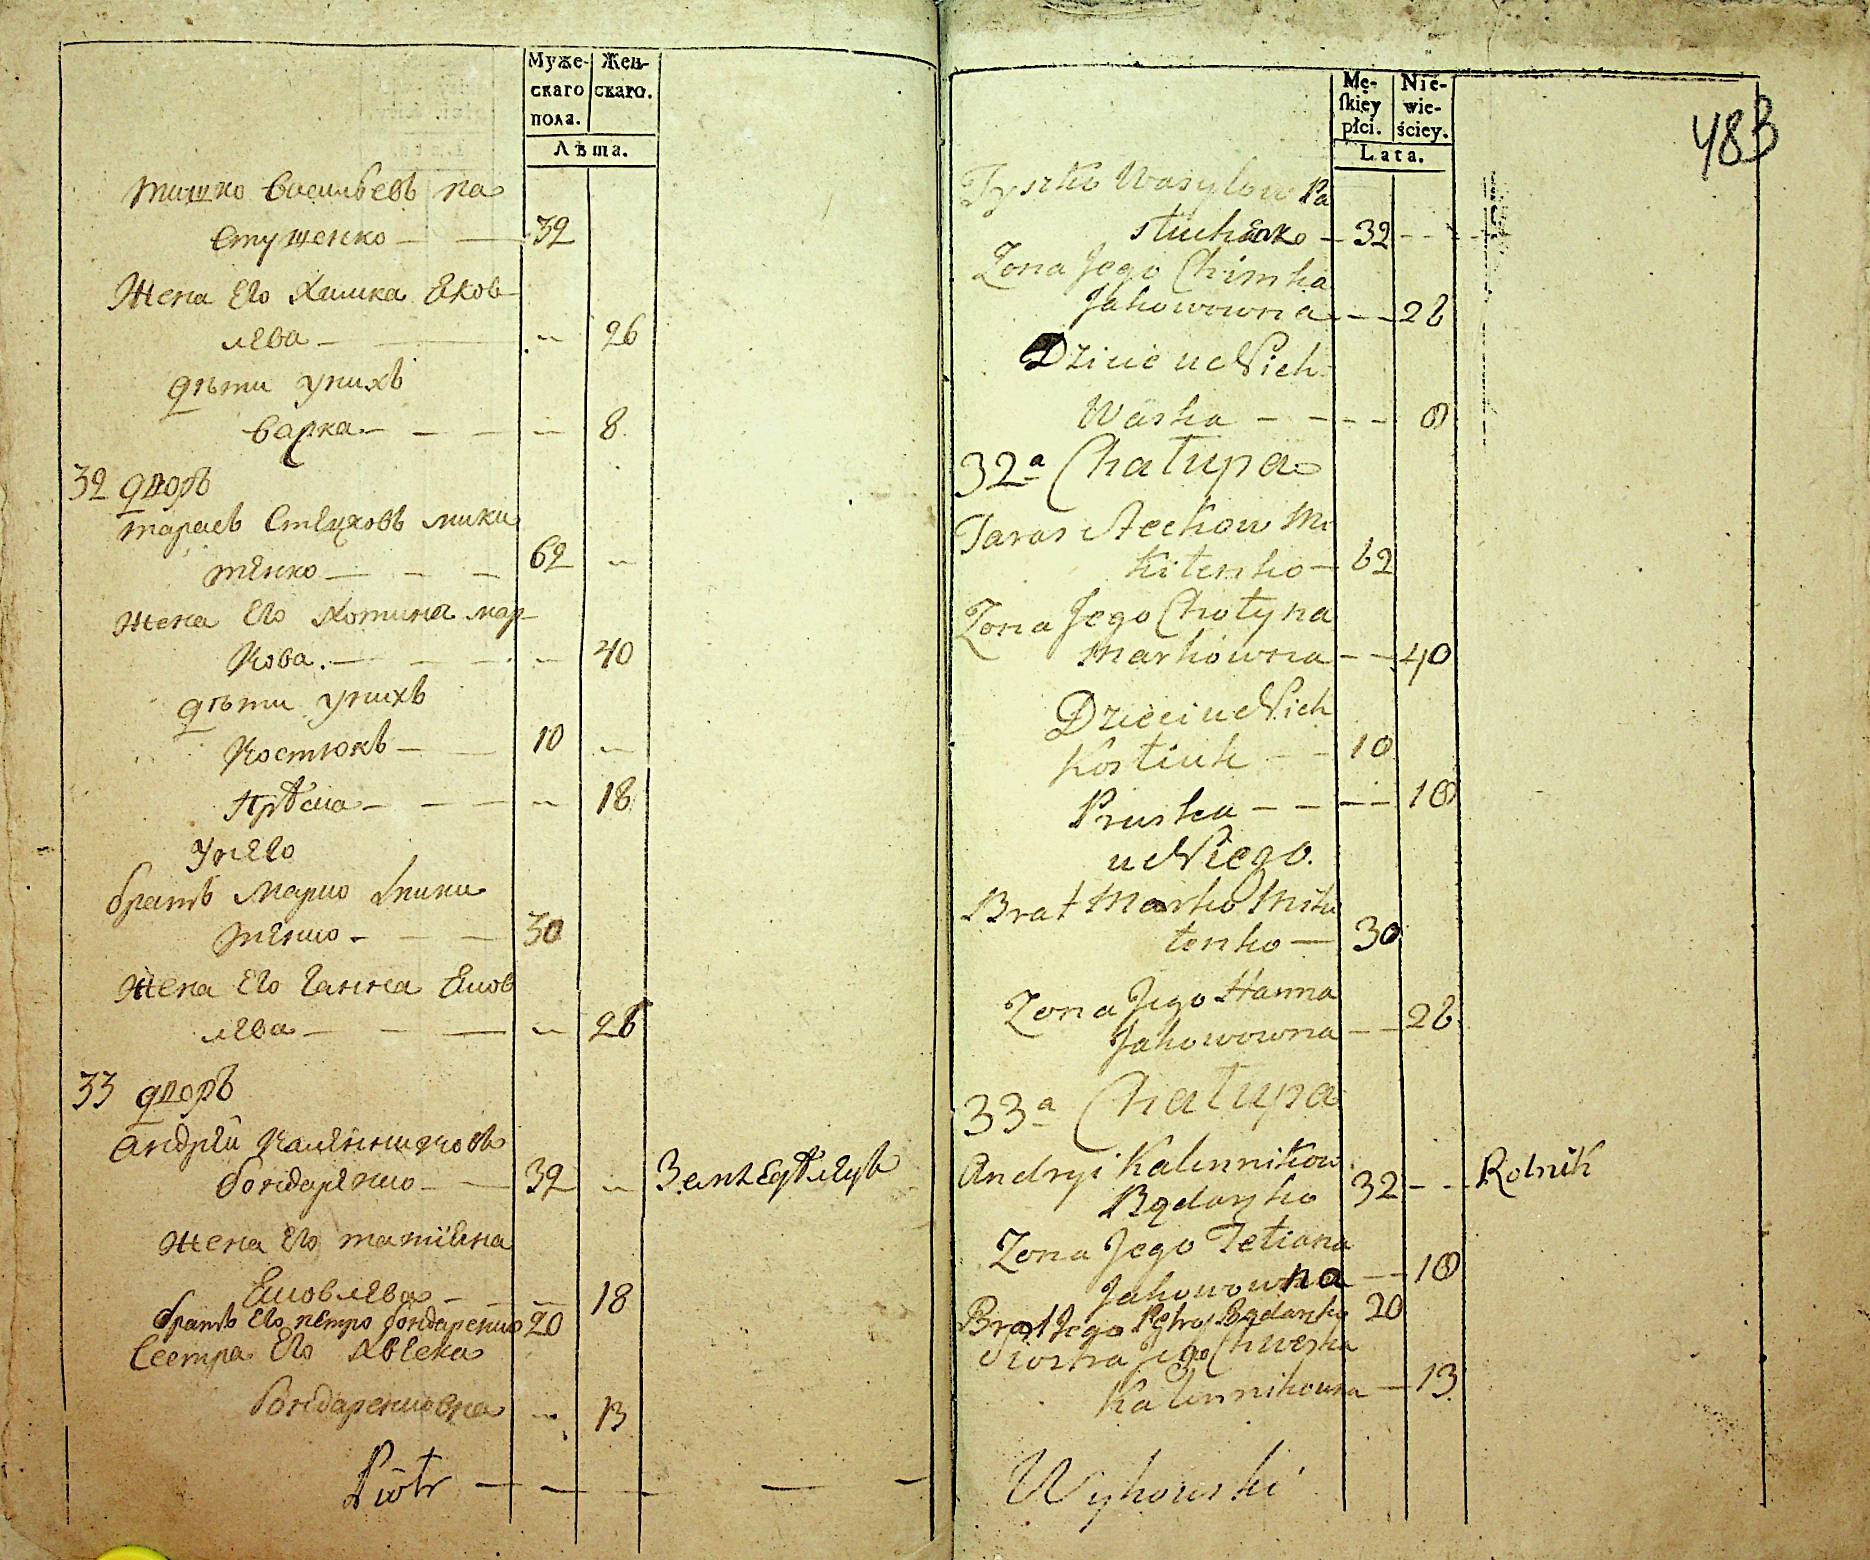 Муже- Жен-
скаго скаго.
пола.
Лѣта.
тишко василбевъ па
стушенко — — 32
Жена Его Химка Яков
лева — — 26
дѣти унихъ
варка — — — 8
32 дворъ
тарасъ Стецковъ мики
тенко — — — 62
Жена Его Хотина мар-
кова. — — — 40
дѣти унихъ
Костюкъ — — 10
Прѣска — — — 18
Унего
братъ Марко Мики
тенко — — — 30
Жена Его Ганна Яков
лева — — — 26
33 дворъ
андрей Каленниковъ
бондаренко — — 32 Земледѣлецъ
Жена Его татиана
Яковлева — — 18
братъ Его петро бондаренко 20
Сестра Его Хвеска
бондаренковна 13
Piotr — — — — —
Mę- Nie-
skiey wie-
płci. ściey.
Lata.
483
Tyszko Wasylow Pa
stuchenko — 32 — —
Zona Jego Chimka
Jakowowna — — 26
Dzieci u Nich
Warka — — — — 8
32a Chałupa
Taras Steckow Mi
kitenko — 62
Zona Jego Chotyna
Markowna — — 40
Dzieci u Nich
Kostiuk — — 10
Pruska — — — — 18
u Niego.
Brat Marko Miki
tenko — 30
Zona Jego Hanna
Jakowowna — — 26
33a Chałupa
Andryi Kalennikow
Bądarenko 32 — — Rolnik
Zona Jego Tetiana
Jakowowna — — 18
Brat Jego Petro Bądarenko 20
Siostra Jego Chweska
Kalennikowna — 13
Wykowski